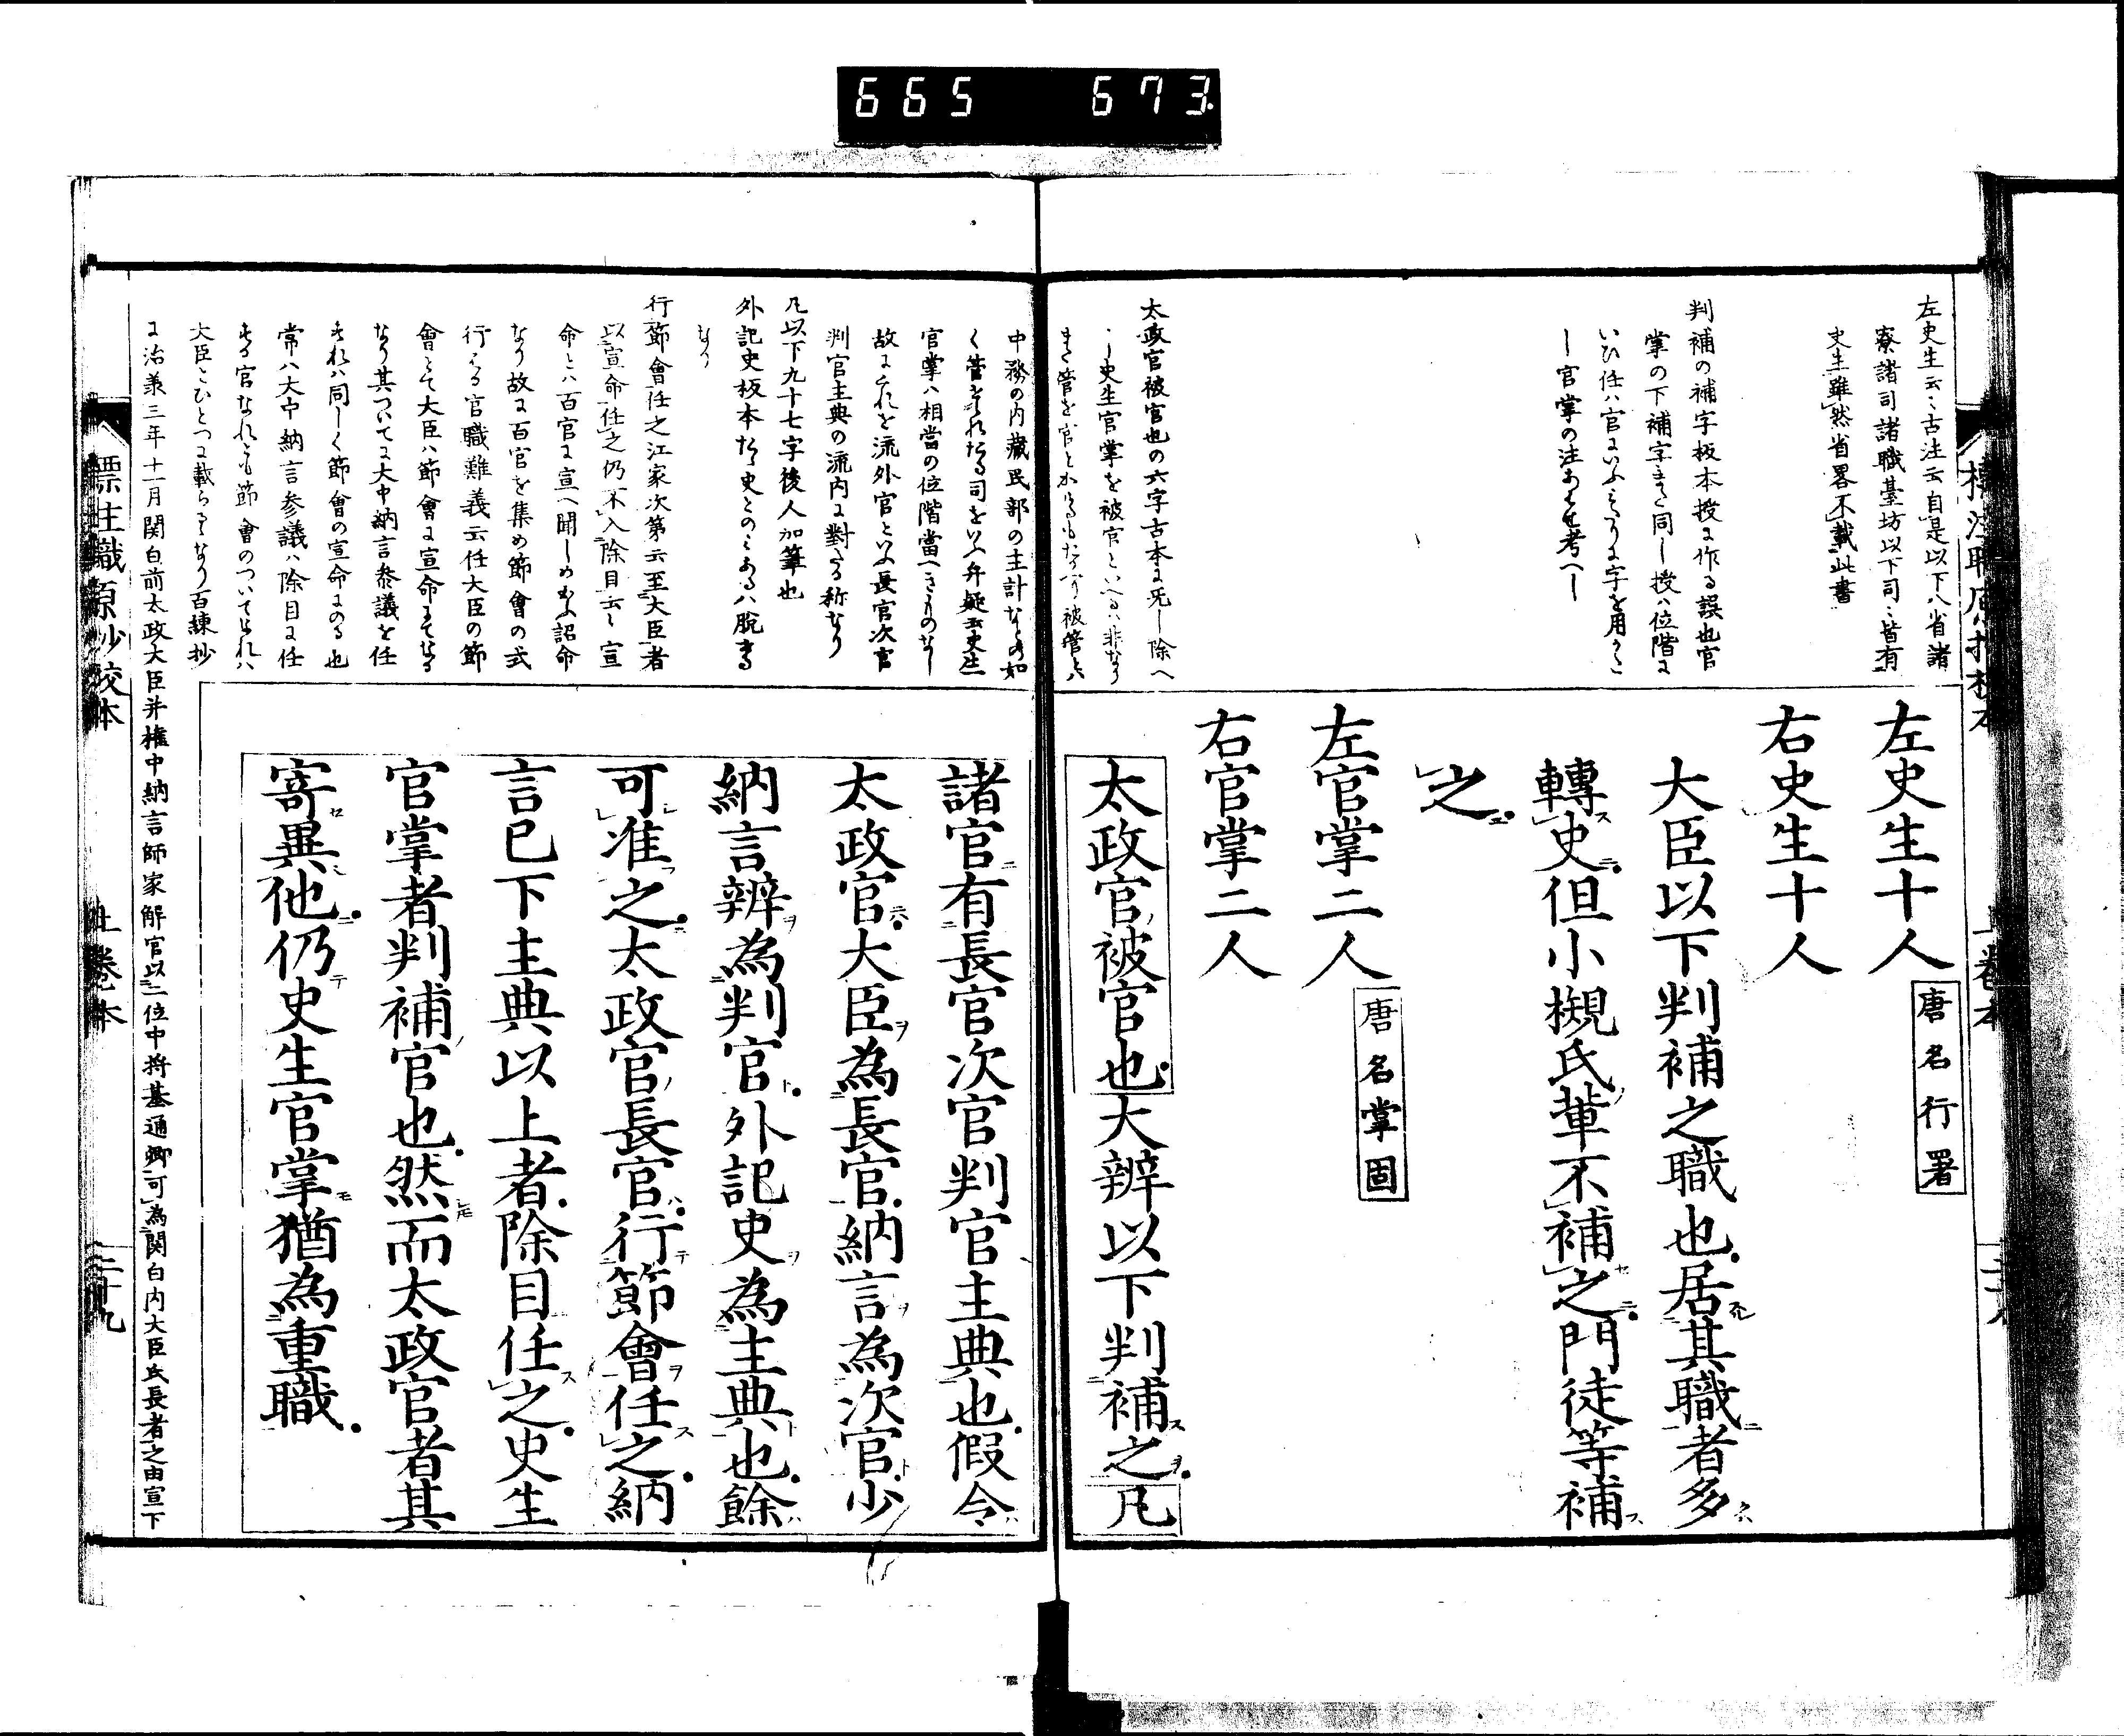 665 673
左史生云〻古注云自是以下八省諸
寮諸司諸職臺坊以下司〻皆有
史生雖然省畧不載此書
判補の補字板本授に作る誤也官
掌の下補字また同し授ハ位階に
いひ任ハ官にいふ
し官掌の注あはせ考へし
太政官被官也の六字古本に无し除へ
し史生官掌を被官といへるハ非なり
左史生十人
唐名行署
右史生十人
大臣以下判補之職也居其職者多
轉史但小槻氏輩不補之門徒等補
之
左官掌二人
唐名掌固
右官掌二人
太政官被官也大辨以下判補之凡
中務の内藏民部の主計なとの如
官掌ハ相當の位階當へきものなし
故にこれを流外官といふ長官次官
判官主典の流内に對する称なり
凡以下九十七字後人加筆也
外記史板本たゝ史とのミあるハ脱せる
なり
行節會任之江家次第云至大臣者
以宣命任之仍不入除目云〻宣
命とハ百官に宣へ聞しめたまふ詔命
なり故に百官を集め節會の式
行はる官職難義云任大臣の節
會とて大臣ハ節會に宣命にてなる
なり其ついてに大中納言参議を任
すれハ同しく節會の宣命にのる也
常ハ大中納言参議ハ除目に任
する官なれとも節會のついてなれハ
大臣とひとつに載らるゝなり百練抄
に治羕三年十一月関白前太政大臣并權中納言師家解官以二位中将基通卿可為関白内大臣氏長者之由宣下
諸官有長官次官判官主典也假令
太政官大臣為長官納言為次官少
納言辨為判官外記史為主典也餘
可准之太政官長官行節會任之納
言已下主典以上者除目任之史生
官掌者判補官也然而太政官者其
寄異他仍史生官掌猶為重職
標注職原抄校本
上卷本
二十九